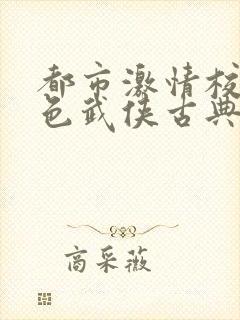 都市激情校
色武侠古典
商采薇